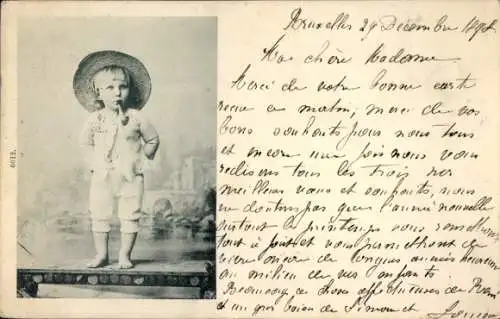 Bruxelles 29 Décembre
Ma chère Madame
Merci de votre bonne carte
reçue ce matin, merci de vos
bons souhaits pour nous tous
et encore une fois nous vous
redisons tous les trois nos
meilleurs vœux et souhaits, nous
ne doutons pas que l'année nouvelle
surtout le printemps vous
tout à fait et vous permettront de
vivre encore de longues années heureuses
au milieu de vos enfants.
Beaucoup de choses affectueuses de
et un gros baiser de Simon et
6613.